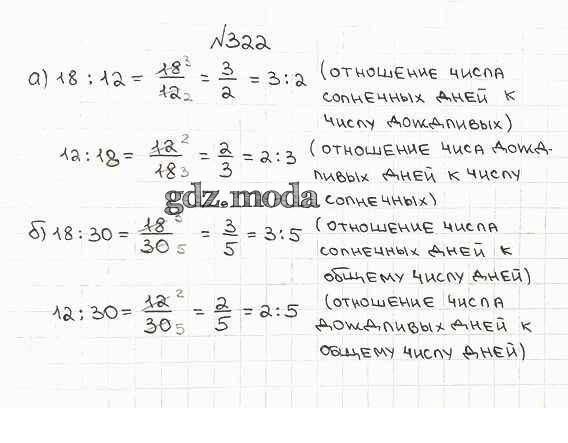 №322
а) 18 : 12 = 18³/12₂ = 3/2 = 3 : 2 (отношение числа
солнечных дней к
числу дождливых)
12 : 18 = 12²/18₃ = 2/3 = 2 : 3 (отношение чиса дожд-
ливых дней к числу
солнечных)
gdz.moda
б) 18 : 30 = 18³/30₅ = 3/5 = 3 : 5 (отношение числа
солнечных дней к
общему числу дней)
12 : 30 = 12²/30₅ = 2/5 = 2 : 5 (отношение числа
дождливых дней к
общему числу дней)